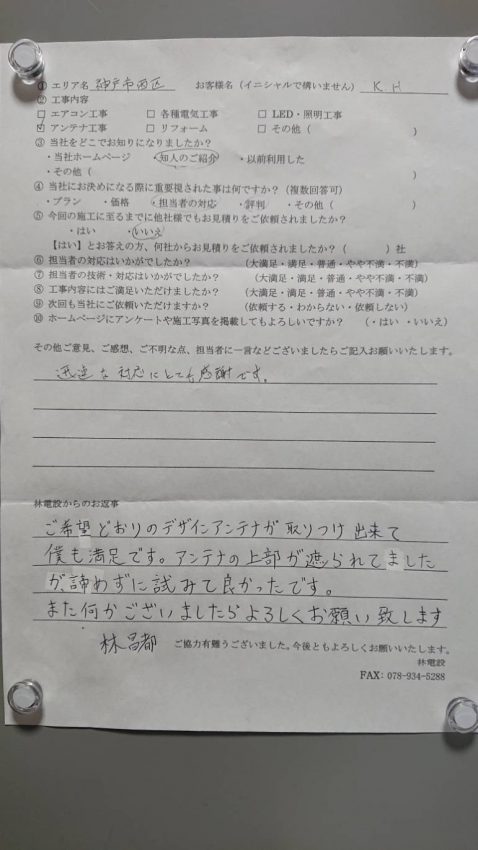 ① エリア名 神戸市西区 お客様名（イニシャルで構いません） K.H
② 工事内容
□ エアコン工事 □ 各種電気工事 □ LED・照明工事
☑ アンテナ工事 □ リフォーム □ その他（ ）
③ 当社をどこでお知りになりましたか？
・当社ホームページ ・知人のご紹介 ・以前利用した
・その他（ ）
④ 当社にお決めになる際に重要視された事は何ですか？（複数回答可）
・プラン ・価格 ・担当者の対応 ・評判 ・その他（ ）
⑤ 今回の施工に至るまでに他社様でもお見積りをご依頼されましたか？
・はい ・いいえ
【はい】とお答えの方、何社からお見積りをご依頼されましたか？（ ）社
⑥ 担当者の対応はいかがでしたか？ （大満足・満足・普通・やや不満・不満）
⑦ 担当者の技術・対応はいかがですか？ （大満足・満足・普通・やや不満・不満）
⑧ 工事内容にはご満足いただけましたか？ （大満足・満足・普通・やや不満・不満）
⑨ 次回も当社にご依頼いただけますか？ （依頼する・わからない・依頼しない）
⑩ ホームページにアンケートや施工写真を掲載してもよろしいですか？ （・はい ・いいえ）
その他ご意見、ご感想、ご不明な点、担当者に一言などございましたらご記入お願いいたします。
迅速な対応にとても感謝です。
林電設からのお返事
ご希望どおりのデザインアンテナが取りつけ出来て
僕も満足です。アンテナの上部が遮られてました
が、諦めずに試みて良かったです。
また何かございましたらよろしくお願い致します
林昌都 ご協力有難うございました。今後ともよろしくお願いいたします。
林電設
FAX: 078-934-5288